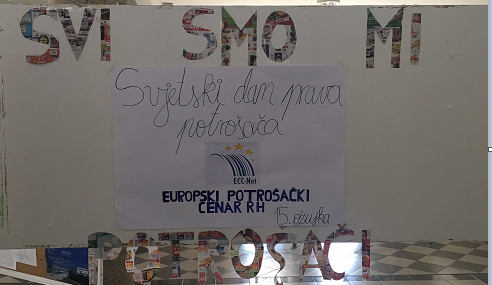 SVI SMO MI
Svjetski dan prava
potrošača
ECC-Net
EUROPSKI POTROŠAČKI
CENAR RH 15. ožujka
POTROŠAČI